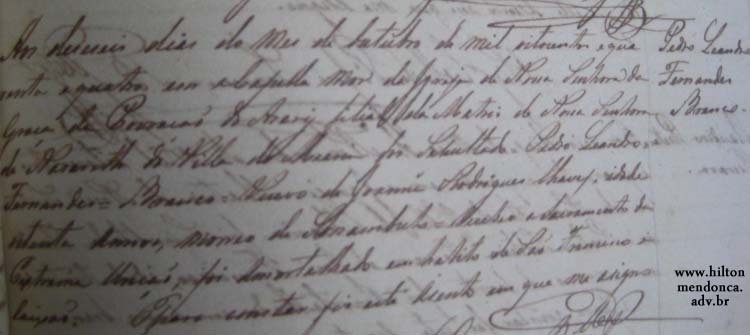 Aos deseseis dias do Mes de Outubro de mil oitocentos e qua
renta e quatro em a Capella Mor da Igreja de Nossa Senhora da
Graça da Povoação do filial da Matris de Nossa Senhora
de Nazareth da Villa de foi Sepultado Pedro Leandro
Fernandes Branco Viuvo de Joanna Rodrigues Chaves, idade
oitenta annos, morreo de Recebeo o Sacramento da
Extrema Unção, foi amortalhado em habito de São Francisco e
E para constar fis este assento em que me asigno
Pedro Leandro
Fernandes
Branco
www.hilton
mendonca.
adv.br